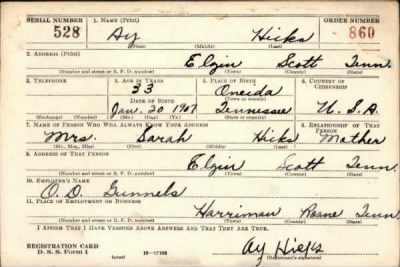 SERIAL NUMBER 1. NAME (Print) ORDER NUMBER
528 Ay Hicks 860
(First) (Middle) (Last)
2. ADDRESS (Print)
Elgin Scott Tenn.
(Number and street or R. F. D. number) (Town) (County) (State)
3. TELEPHONE 4. AGE IN YEARS 5. PLACE OF BIRTH 6. COUNTRY OF CITIZENSHIP
33 Oneida
DATE OF BIRTH (Town or county)
Jan. 20 1907 Tennessee U.S.A.
(Exchange) (Number) (Mo.) (Day) (Yr.) (State or country)
7. NAME OF PERSON WHO WILL ALWAYS KNOW YOUR ADDRESS 8. RELATIONSHIP OF THAT PERSON
Mrs. Sarah Hicks Mother
(Mr., Mrs., Miss) (First) (Middle) (Last)
9. ADDRESS OF THAT PERSON
Elgin Scott Tenn.
(Number and street or R. F. D. number) (Town) (County) (State)
10. EMPLOYER'S NAME
O.D. Gunnels
11. PLACE OF EMPLOYMENT OR BUSINESS
Harriman Roane Tenn.
(Number and street or R. F. D. number) (Town) (County) (State)
I AFFIRM THAT I HAVE VERIFIED ABOVE ANSWERS AND THAT THEY ARE TRUE.
REGISTRATION CARD
D. S. S. Form 1 (over) Ay Hicks
(Registrant's signature)